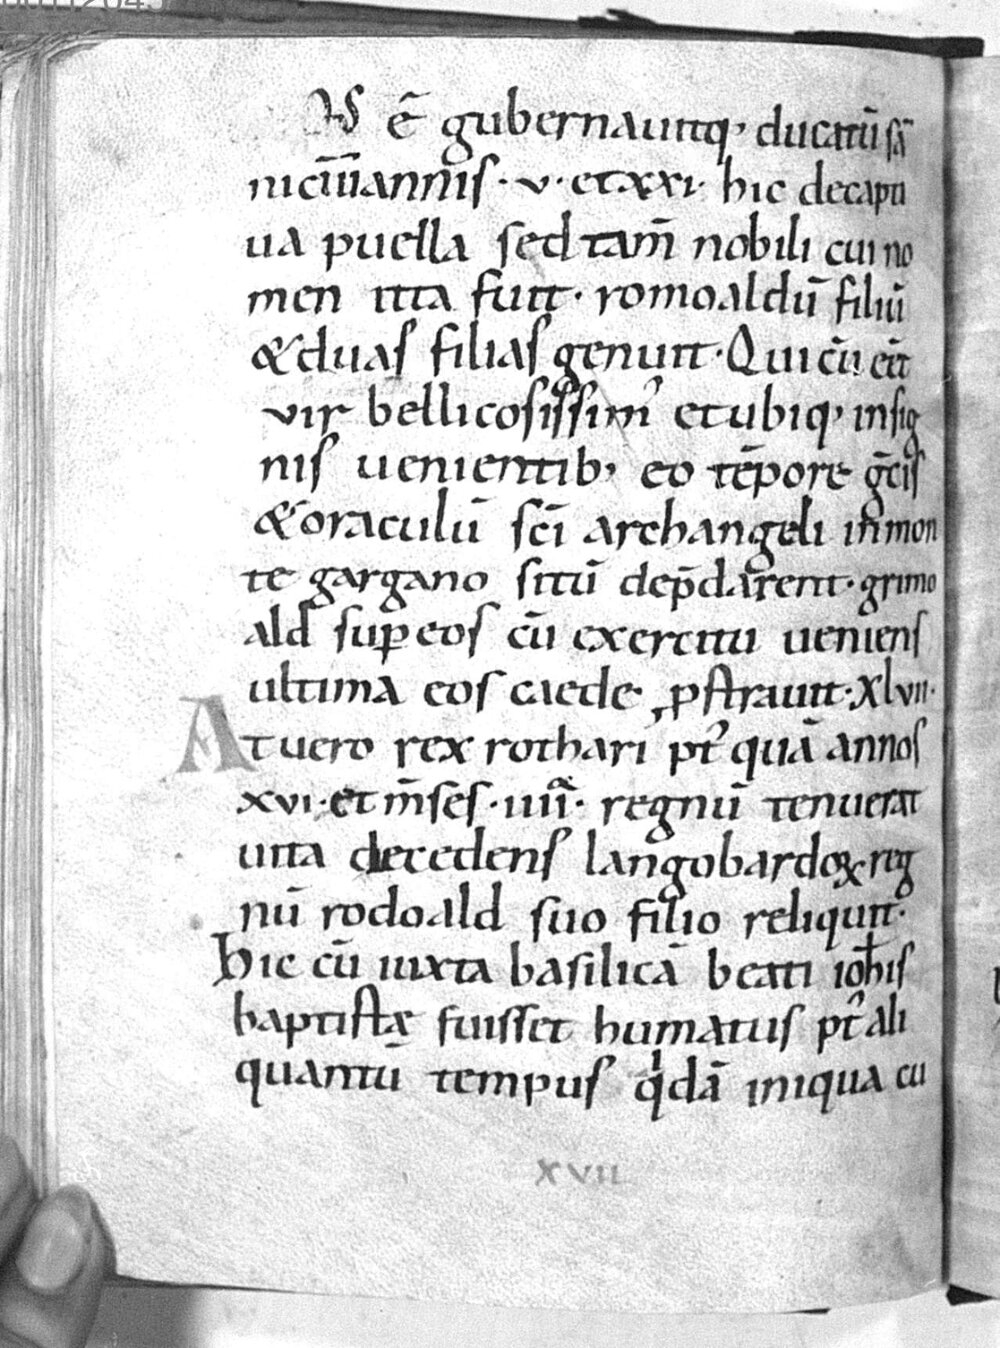 us ē gubernauitq; ducatū sā
nitiū annis · v · et xxi · hic de capti
ua puella sed tam̄ nobili cui no
men itta fuit · romoaldū filiū
& duas filias genuit · Qui cū eēt
vir bellicosissim' et ubiq; insig
nis uenientib; eo tēpore ḡcis
& oraculū sc̄i archangeli in mon
te gargano sitū dep̄darent · grimo
ald sup eos cū exercitu ueniens
ultima eos caede ꝓstrauit · xlvii ·
At uero rex rothari pt' quā annos
xvi · et m̄ses · iiii · regnū tenuerat
uita decedens langobardoꝝ reg
nū rodoald suo filio reliquit ·
hic cū iuxta basilicā beati ioh̄is
baptistę fuisset humatus pt' ali
quantū tempus q̇dā iniqua cu
XVII